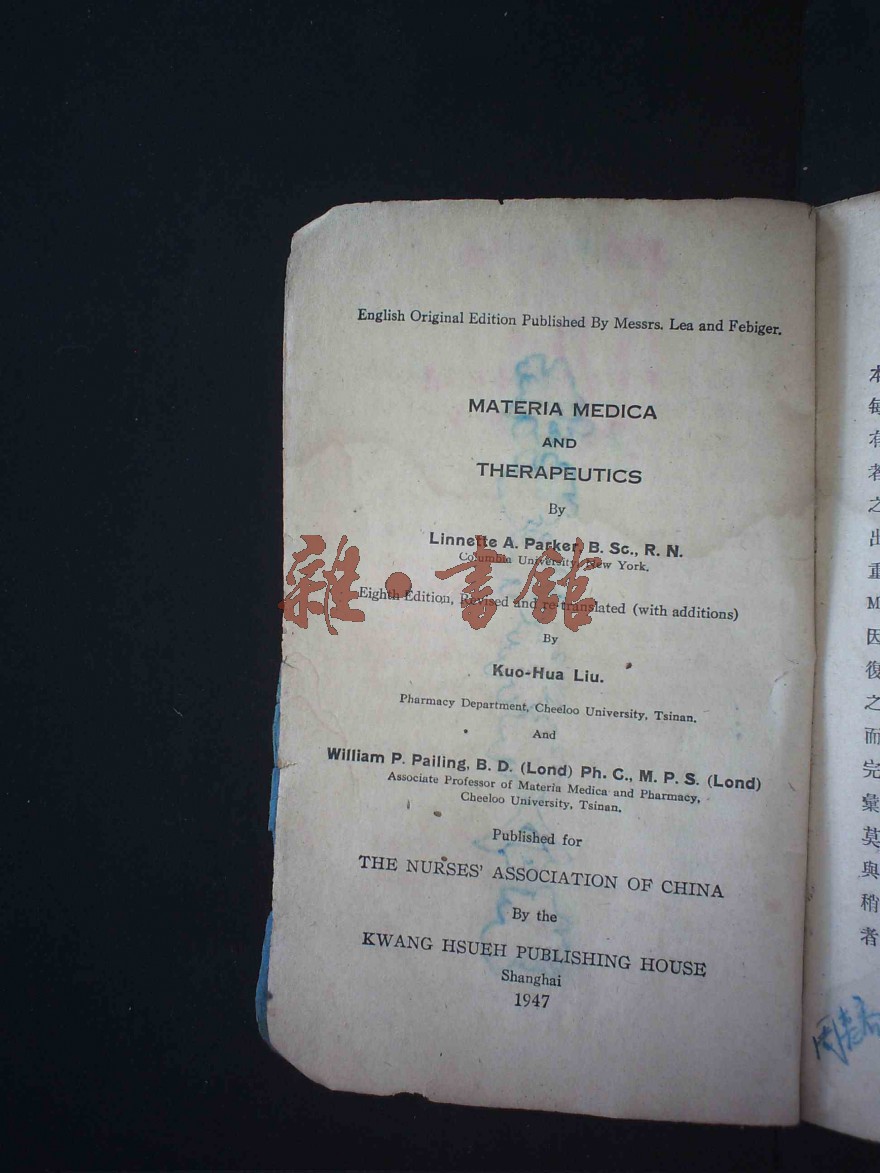 English Original Edition Published By Messrs. Lea and Febiger.
MATERIA MEDICA
AND
THERAPEUTICS
By
Linnette A. Parker, B. Sc., R. N.
Columbia University, New York.
Eighth Edition, Revised and re-translated (with additions)
By
Kuo-Hua Liu.
Pharmacy Department, Cheeloo University, Tsinan.
And
William P. Pailing, B. D. (Lond) Ph. C., M. P. S. (Lond)
Associate Professor of Materia Medica and Pharmacy,
Cheeloo University, Tsinan.
Published for
THE NURSES' ASSOCIATION OF CHINA
By the
KWANG HSUEH PUBLISHING HOUSE
Shanghai
1947
雜·書館
本
每
有
若
之
出
重
M
因
復
之
而
完
彙
莫
與
稍
者